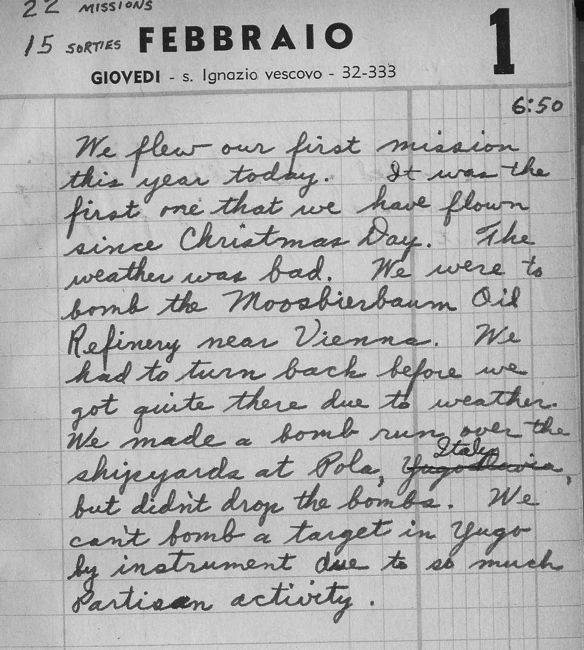 22 MISSIONS
15 SORTIES FEBBRAIO 1
GIOVEDI - s. Ignazio vescovo - 32-333
6:50
We flew our first mission
this year today. It was the
first one that we have flown
since Christmas Day. The
weather was bad. We were to
bomb the Moosbierbaum Oil
Refinery near Vienna. We
had to turn back before we
got quite there due to weather.
We made a bomb run over the
Italy
shipyards at Pola, Yugoslavia,
but didn't drop the bombs. We
can't bomb a target in Yugo
by instrument due to so much
Partisan activity.